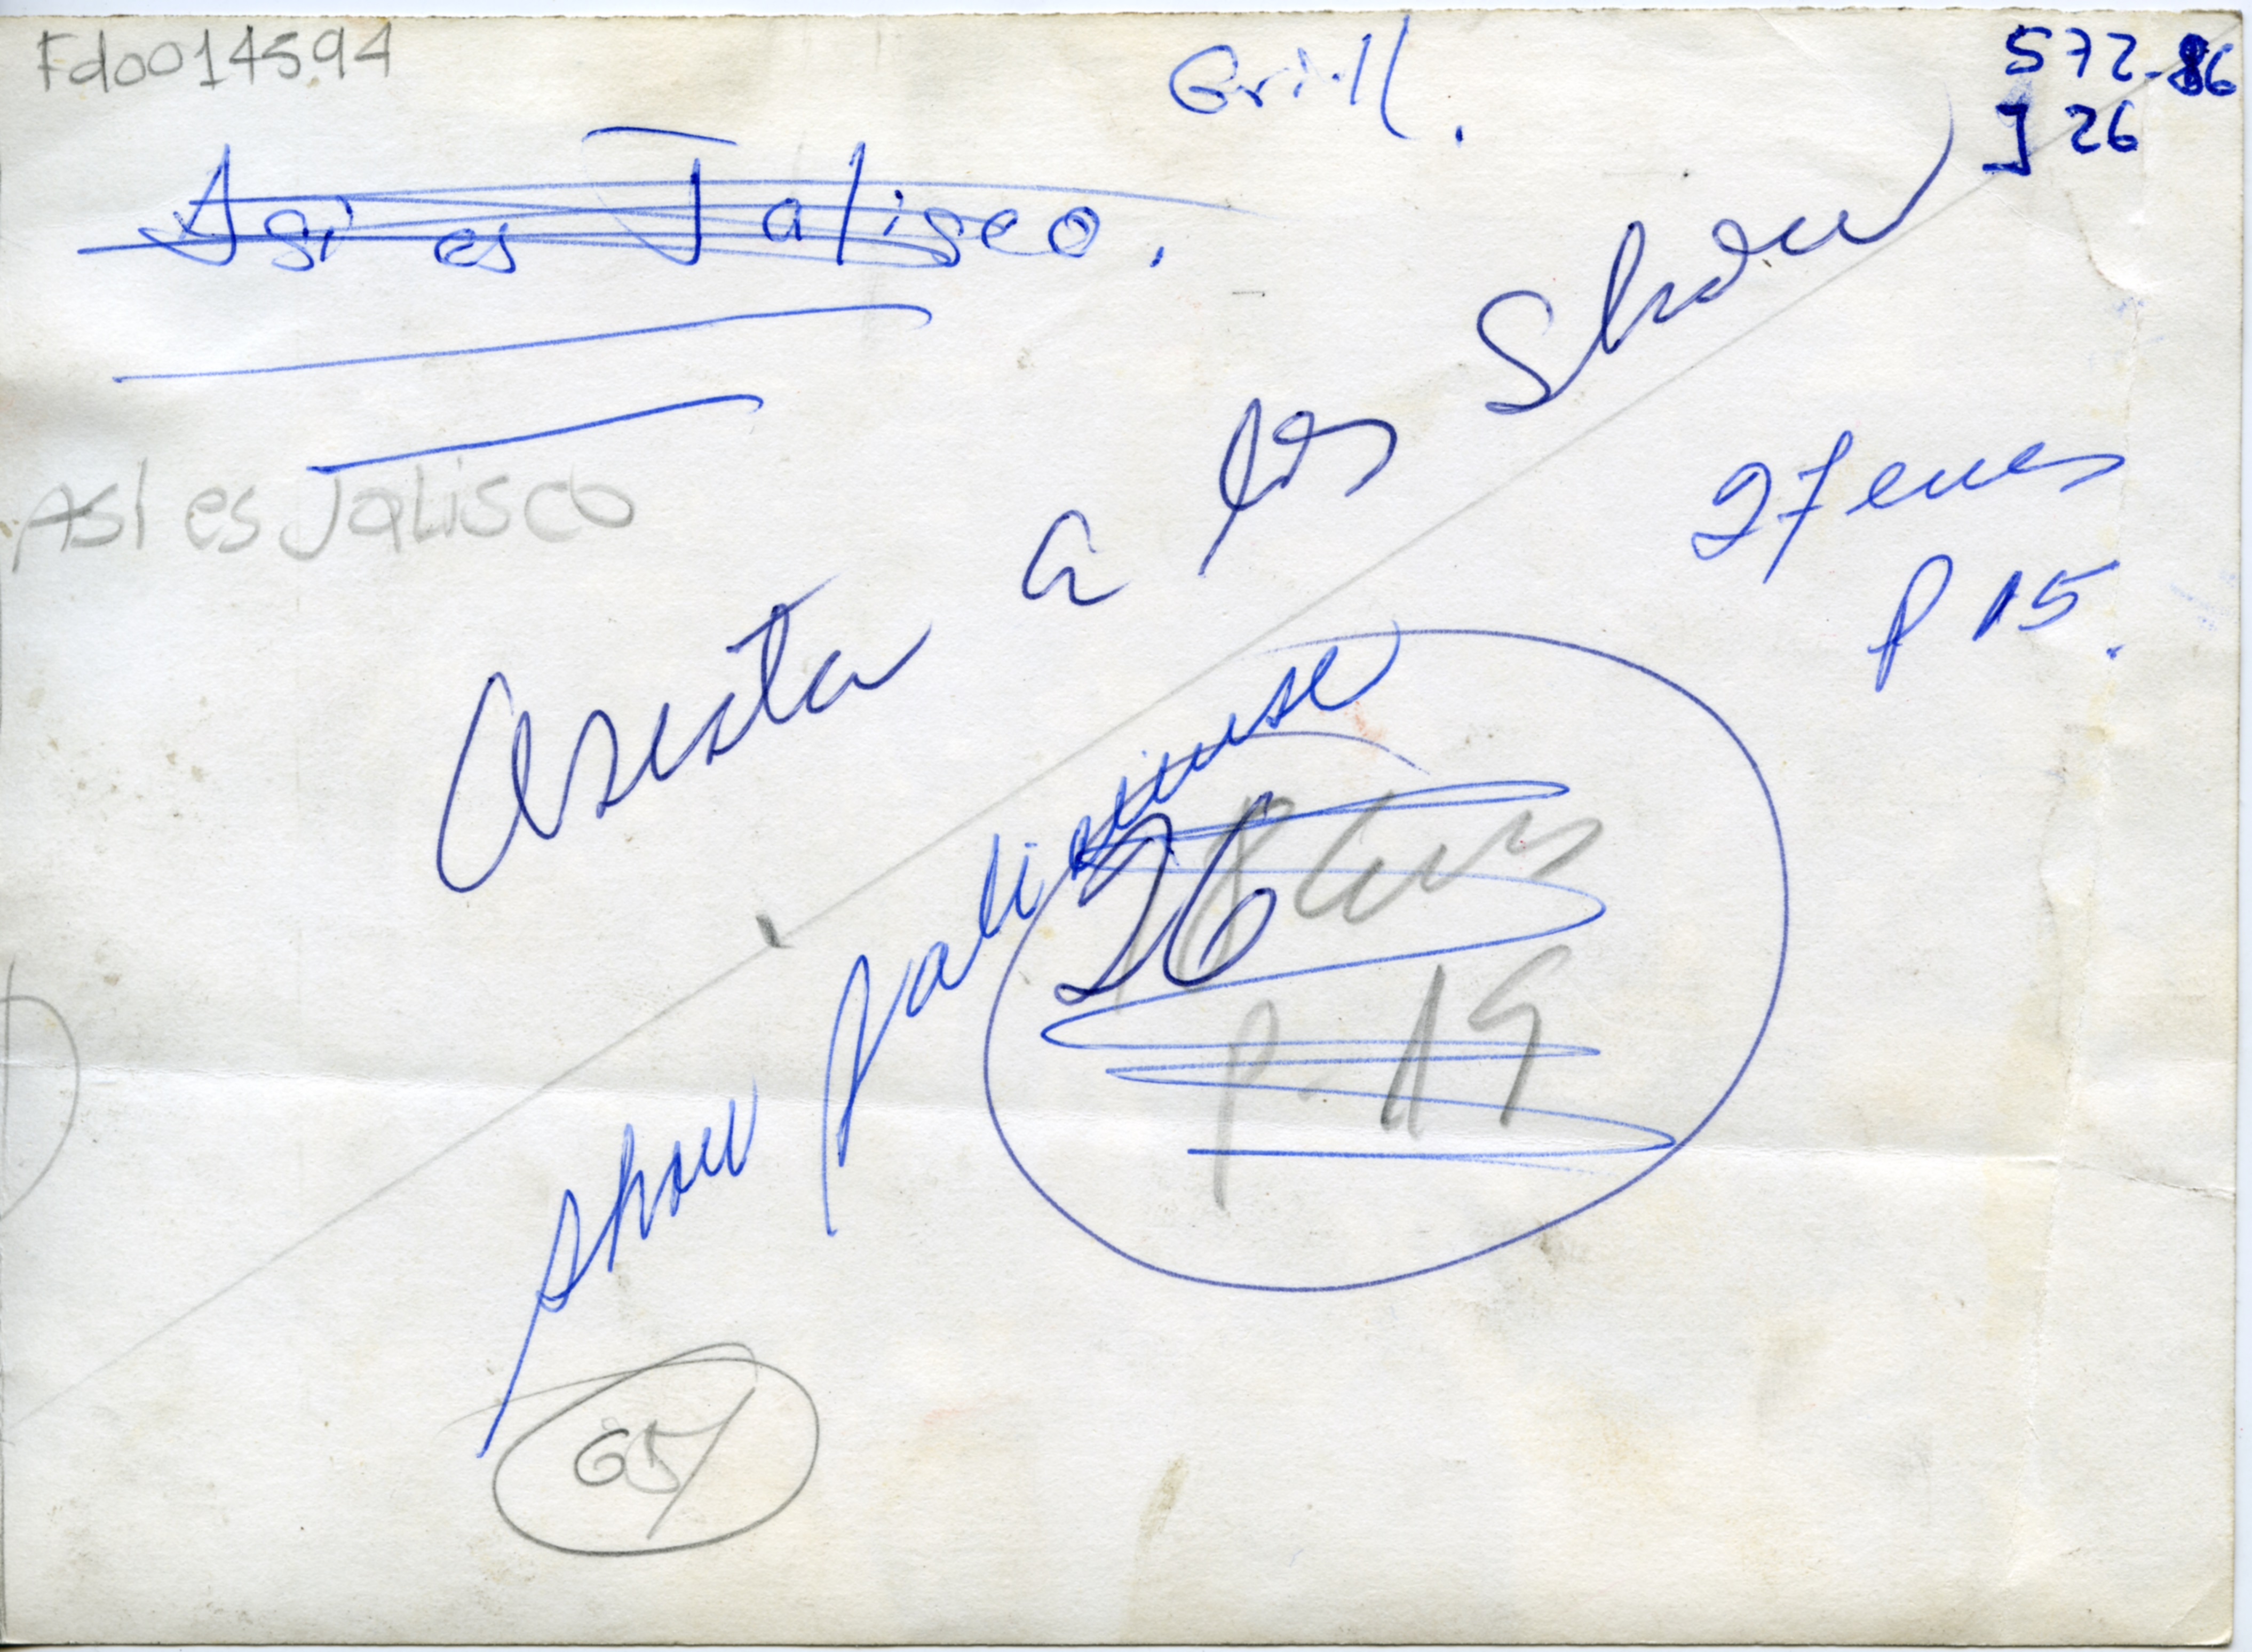 Fdo014594
Grill.
572-86
J 26
Asi es Jalisco.
Asi es Jalisco
Asista a los Show
27 enes
P 15.
show
26
P. 19
65/